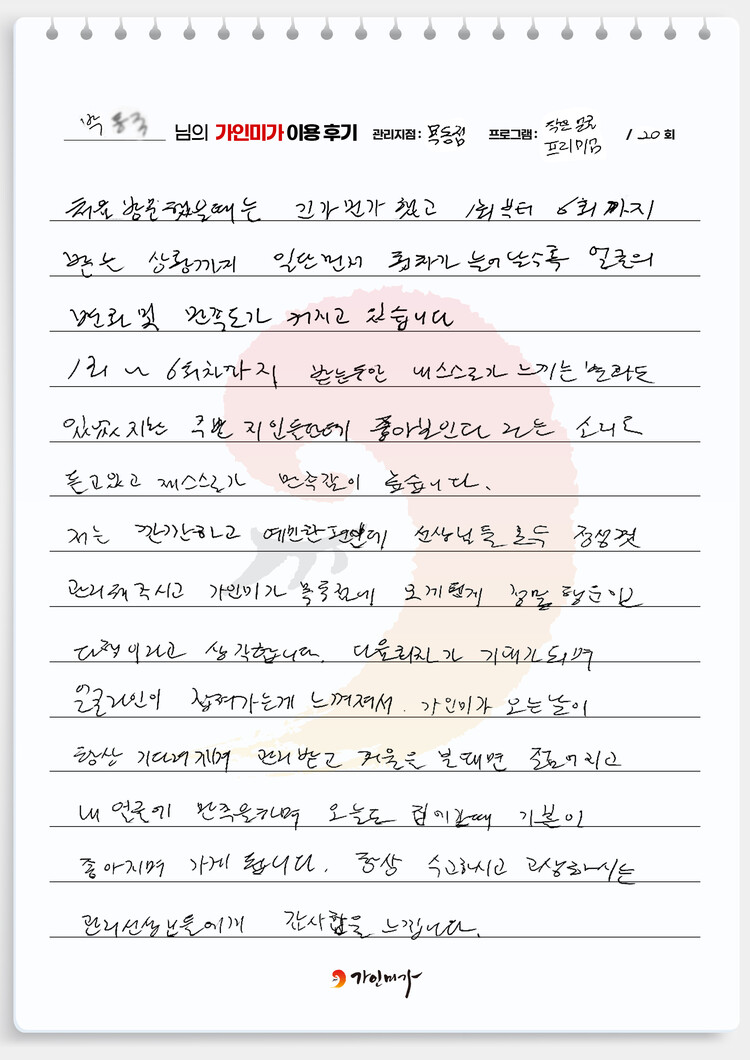 박 님의 가인미가 이용 후기 관리지점 : 목동점 프로그램 : 작은얼굴 프리미엄 / 20 회
처음 방문했을때는 긴가민가 했고 1회부터 6회까지
받는 상황까지 일단먼저 회차가 늘어날수록 얼굴의
변화 및 만족도가 커지고 있습니다
1회 ~ 6회차까지 받는동안 내스스로가 느끼는 변화도
있었지만 주변 지인들한테 좋아보인다 라는 소리도
듣고있고 제스스로가 만족감이 높습니다.
저는 깐깐하고 예민한편인데 선생님들 모두 정성껏
관리해주시고 가인미가 목동점에 오게된게 정말 행운인
다행이라고 생각합니다. 다음회차가 기대가되며
얼굴라인이 잡혀가는게 느껴져서. 가인미가 오는날이
항상 기다려지며 관리받고 거울을 볼때면 젊어지고
내 얼굴에 만족을하며 오늘도 집에갈때 기분이
좋아지며 가게 됩니다. 항상 수고하시고 고생하시는
관리선생님들에게 감사함을 느낍니다.
가인미가